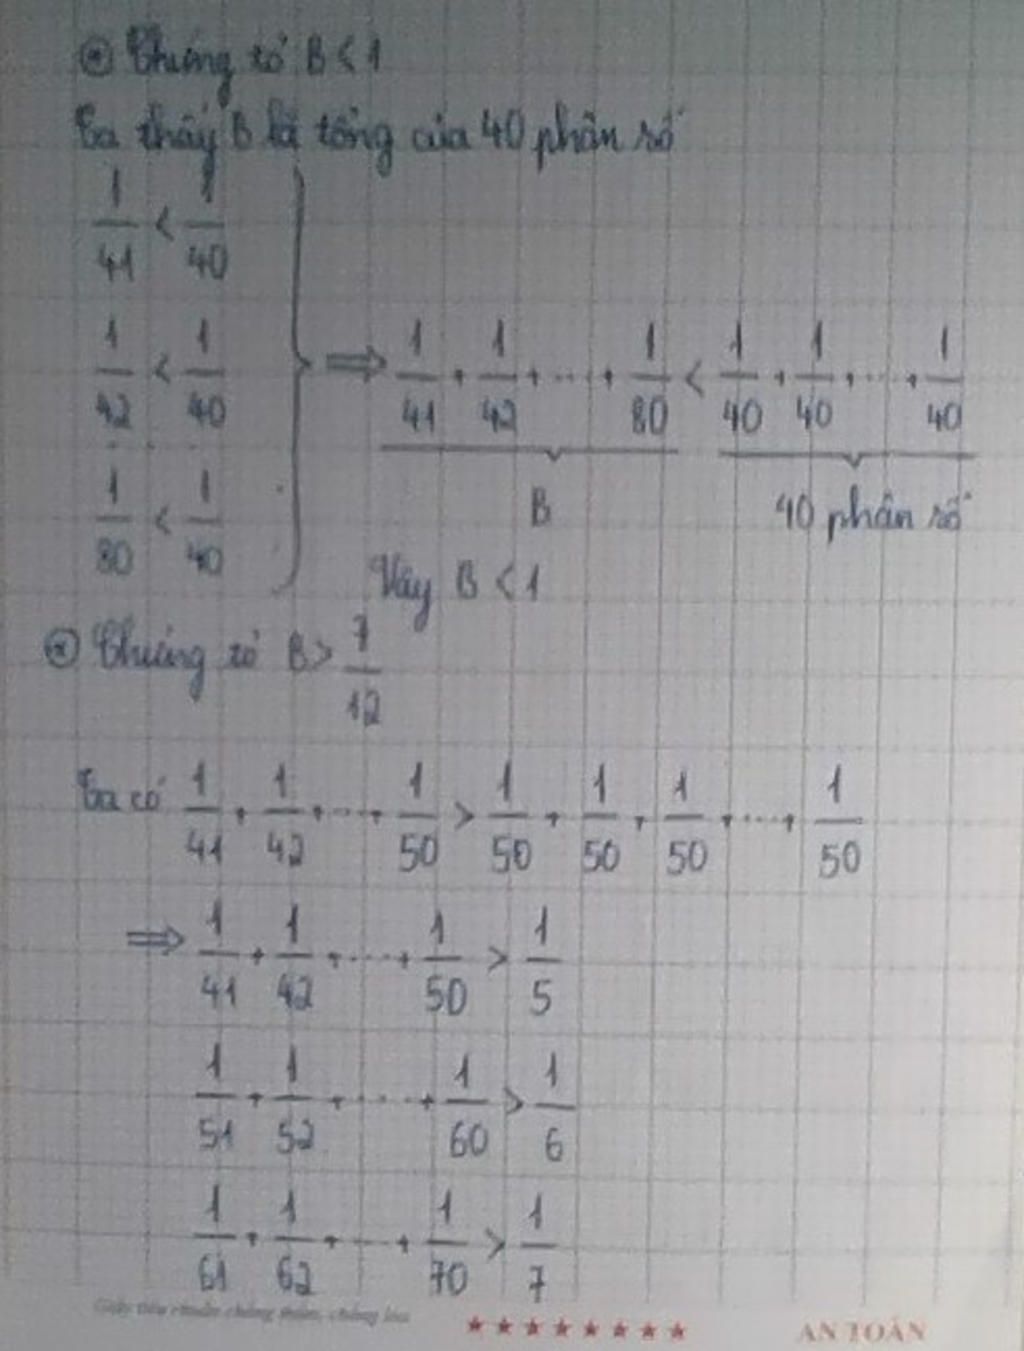 ⊛ Chứng tỏ B < 1
Ta thấy B là tổng của 40 phân số
1/41 < 1/40
1/42 < 1/40
. . . .
1/80 < 1/40
} ⇒ 1/41 + 1/42 + ... + 1/80 < 1/40 + 1/40 + ... + 1/40
B 40 phân số
Vậy B < 1
⊛ Chứng tỏ B > 7/12
Ta có 1/41 + 1/42 + ... + 1/50 > 1/50 + 1/50 + 1/50 + ... + 1/50
⇒ 1/41 + 1/42 + ... + 1/50 > 1/5
1/51 + 1/52 + ... + 1/60 > 1/6
1/61 + 1/62 + ... + 1/70 > 1/7
Giấy tiêu chuẩn chống thấm, chống lóa ★★★★★★★★ AN TOÀN